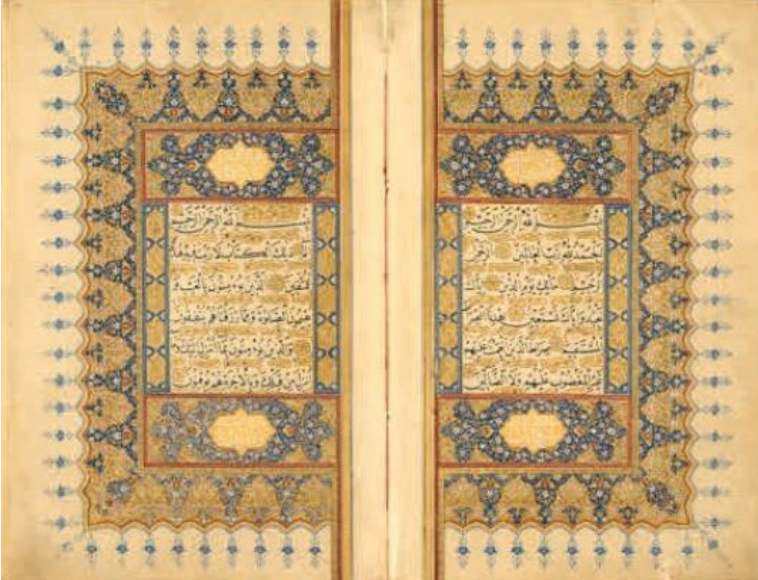 بسم الله الرحمن الرحيم
الحمد لله رب العالمين الرحمن
الرحيم مالك يوم الدين إياك
نعبد وإياك نستعين اهدنا الصراط
المستقيم صراط الذين أنعمت عليهم
غير المغضوب عليهم ولا الضالين
بسم الله الرحمن الرحيم
الم ذلك الكتاب لا ريب فيه هدى
للمتقين الذين يؤمنون بالغيب و
يقيمون الصلوة ومما رزقناهم ينفقون
والذين يؤمنون بما أنزل إليك وما
أنزل من قبلك وبالآخرة هم يوقنون